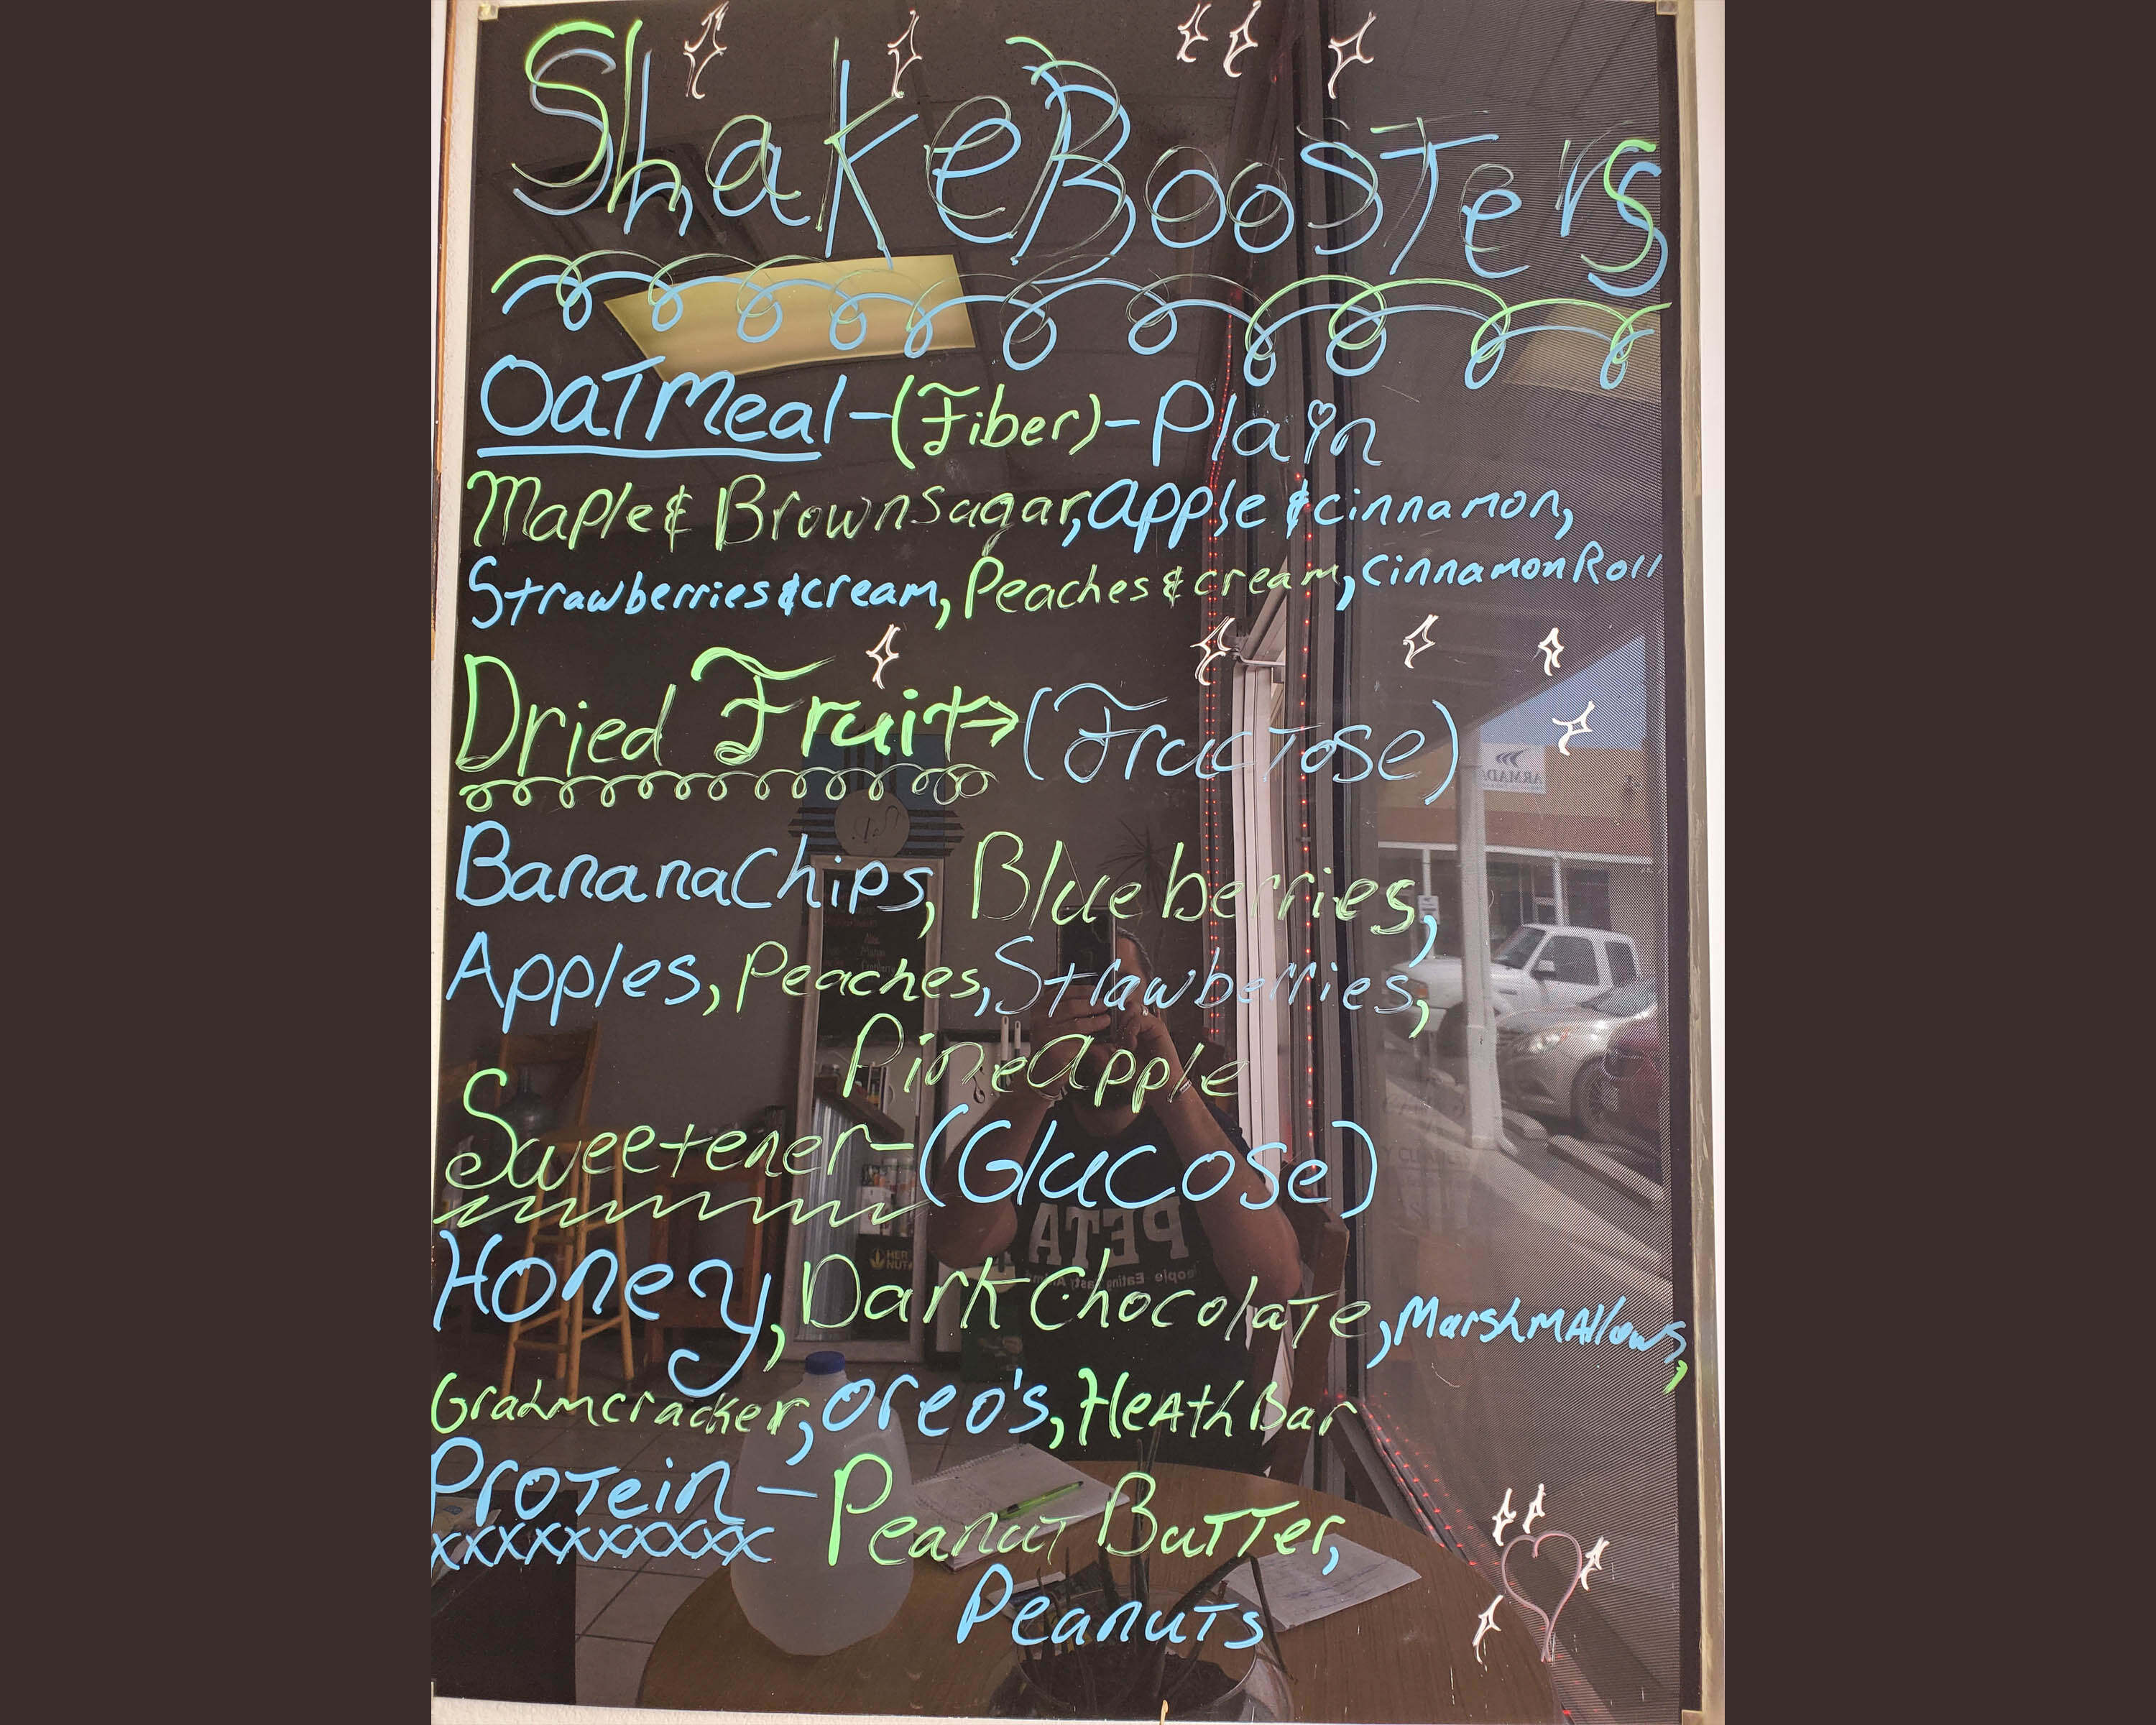 ShakeBoosTers
OaTmeal-(Fiber)-Plain
Maple & Brown sugar, apple & cinnamon,
Strawberries & cream, Peaches & cream, cinnamon Roll
Dried Fruit→(FrucTose)
Banana Chips, Blueberries,
Apples, Peaches, Strawberries,
Pineapple
Sweetener-(Glucose)
Honey, Dark ChocolaTe, MarshmAllows,
Grahmcracker, oreo's, HeAth Bar
ProTein - PeanuT BuTTer,
PeanuTs
ARMADA
PETA
People Eating Tasty Anim
HER
NUT